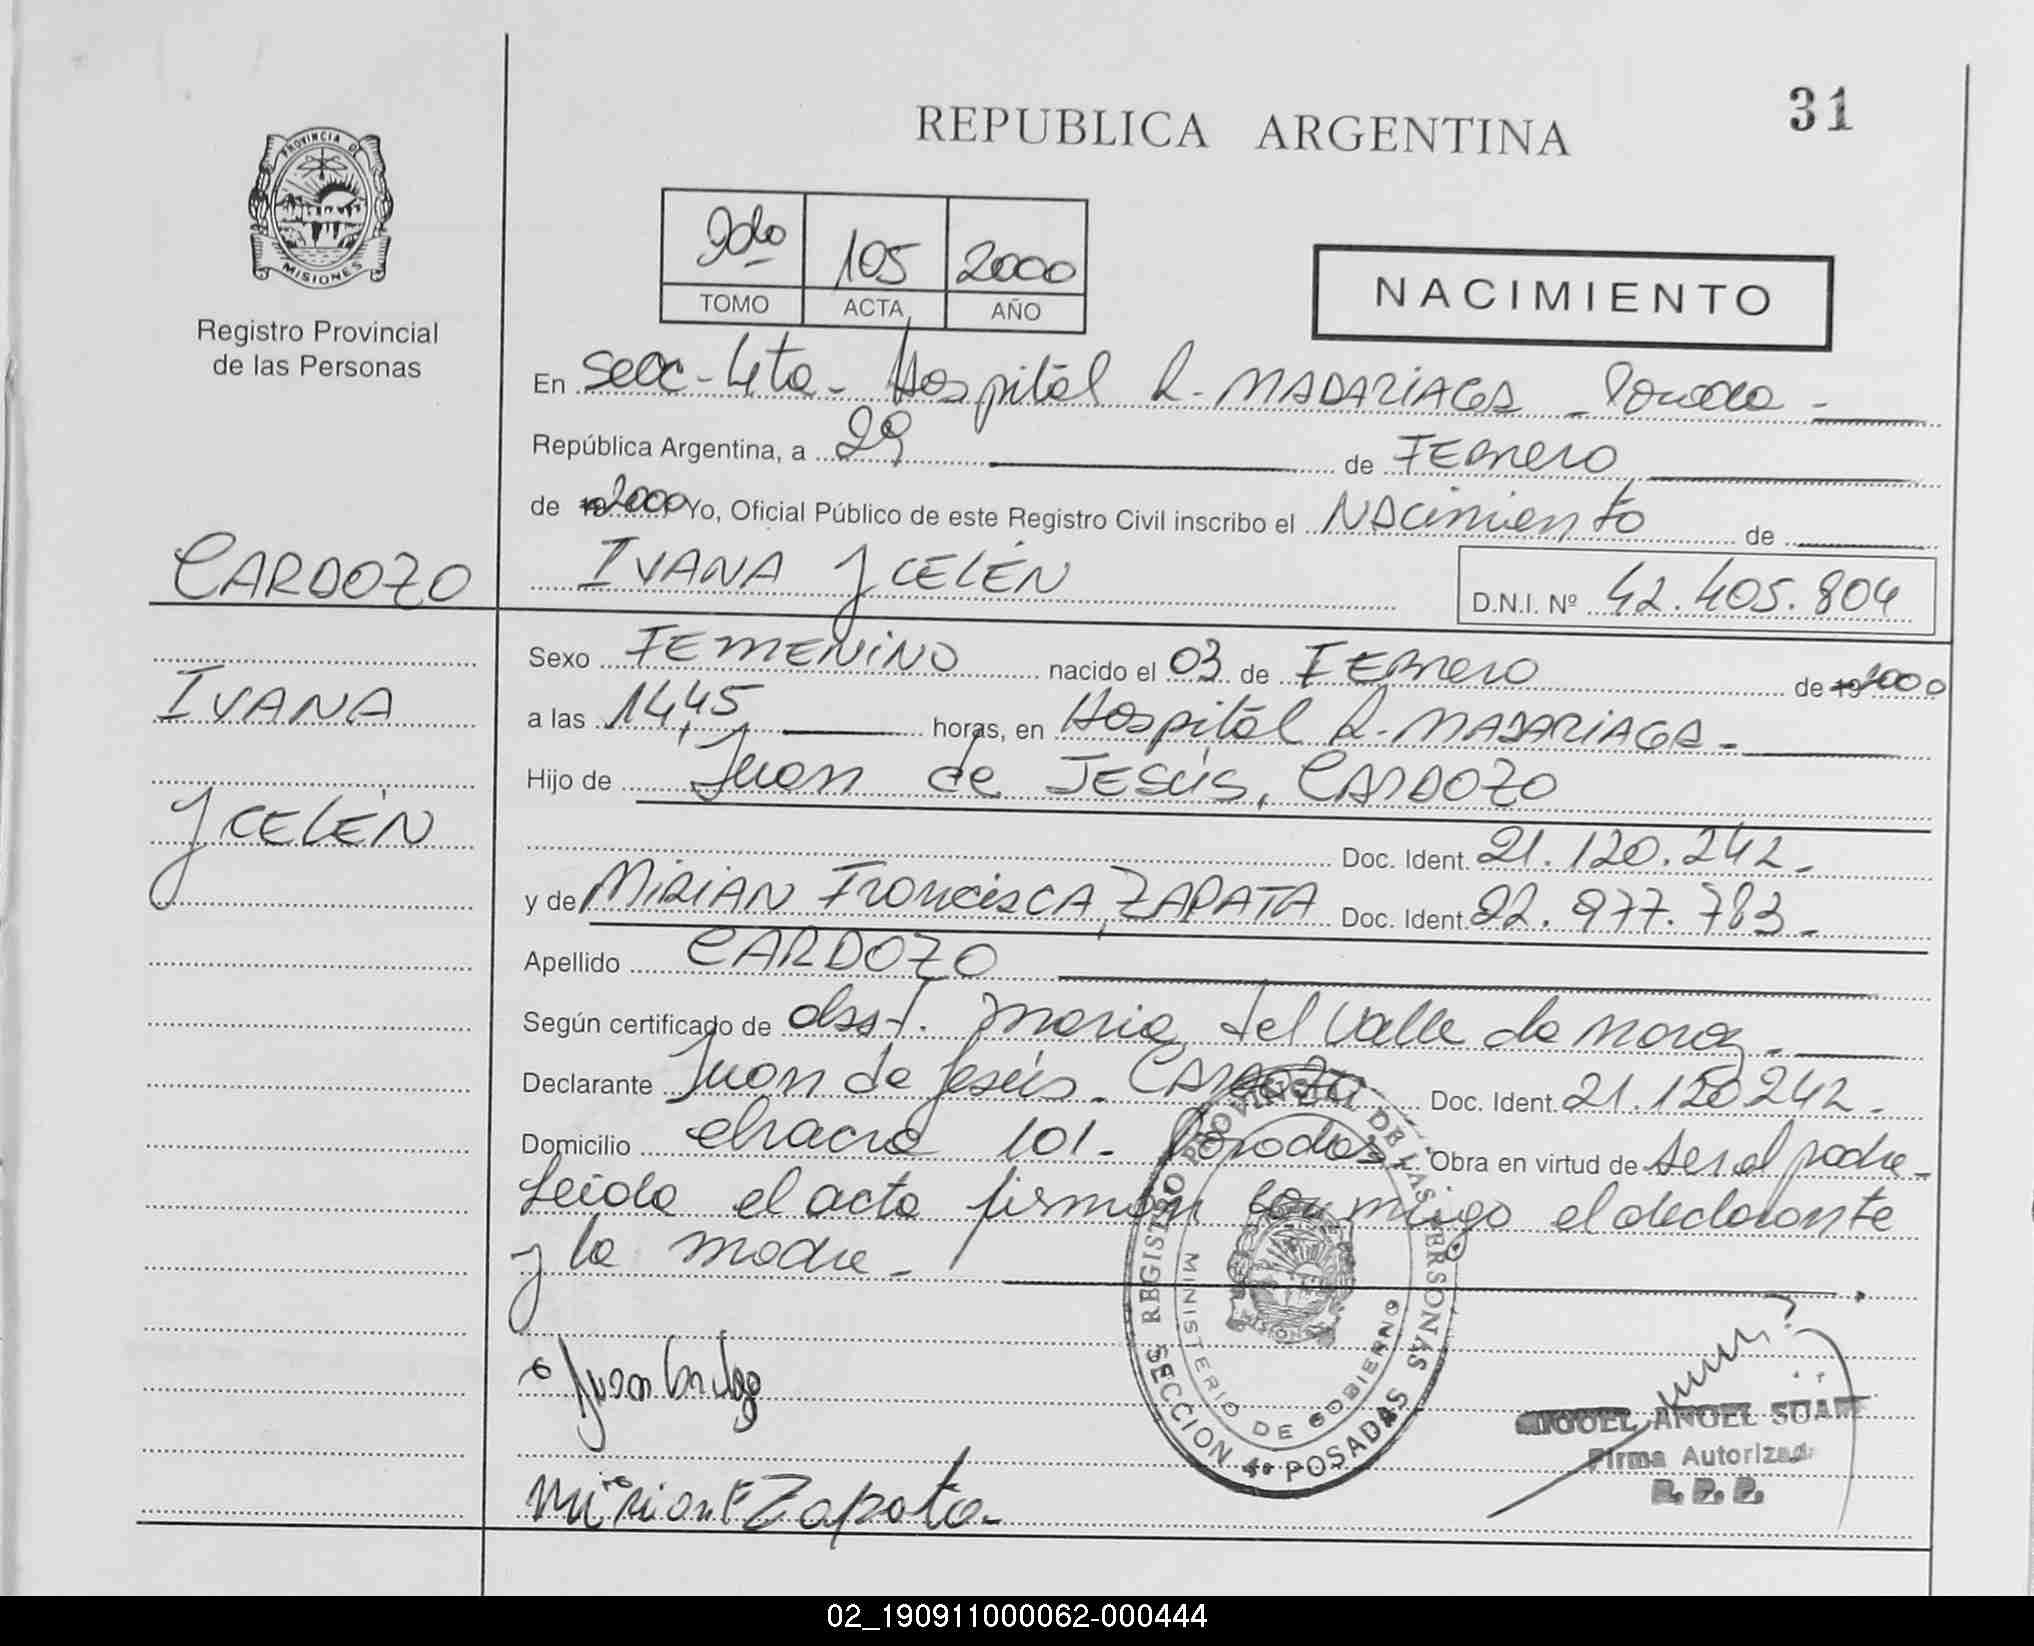 31
REPUBLICA ARGENTINA
PROVINCIA DE
MISIONES
Registro Provincial
de las Personas
2do 105 2000
TOMO ACTA AÑO
NACIMIENTO
En Secc - 4ta - Hospital R. MADARIAGA - Posadas -
República Argentina, a 29 de FEBRERO
de 19 2000 Yo, Oficial Público de este Registro Civil inscribo el NACimiento de
CARDOZO
IVANA YCELÉN
D.N.I. Nº 42.405.804
Sexo FEMENiNO nacido el 03 de FEBRERO de 19 2000
IVANA
a las 14,45 horas, en Hospital R. MADARIAGA -
Hijo de Juan de JESÚS, CARDOZO
YCELÉN
Doc. Ident. 21.120.242 -
y de MIRIAN FrancisCA, ZAPATA Doc. Ident. 22.977.783 -
Apellido CARDOZO
Según certificado de obst. Maria del Valle de Mora -
Declarante Juan de Jesús - CARDOZO Doc. Ident. 21.120 242 -
Domicilio chacra 101 - Posadas - Obra en virtud de ser el padre -
Leida el acta firman conmigo el declarante
y la madre -
REGISTRO PROVINCIAL DE LAS PERSONAS
MINISTERIO DE GOBIERNO
MISIONES
SECCION 4a POSADAS
Juan
MIGUEL ANGEL
Firma Autorizada
R. P. P.
Mirian F Zapata -
02_190911000062-000444